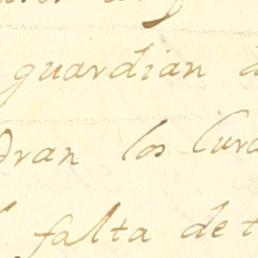 guardian
dran los Cura
falta de t